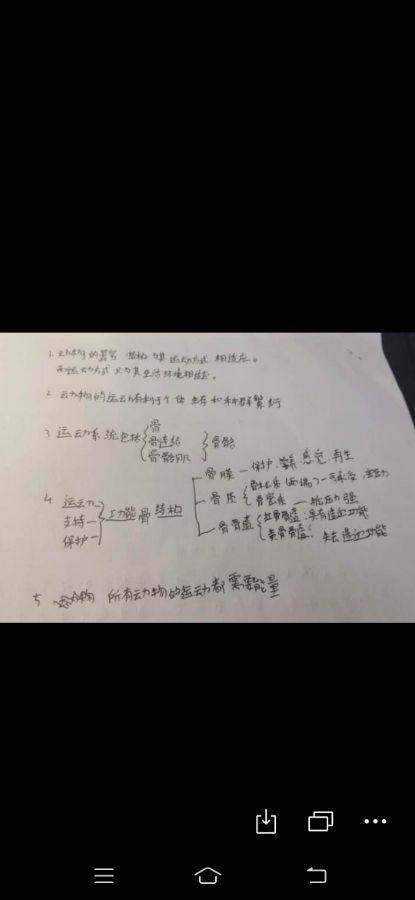 1. 动物的器官 结构与其运动方式相适应。
而运动方式又与其生活环境相适应。
2 动物的运动有利于个体生存和种群繁衍
3 运动系统包括
骨
骨连结
骨骼肌
骨骼
4 运动
支持
保护
功能 骨 结构
骨膜 — 保护 营养 感觉 再生
骨质
(两端)
骨密质 — 抗压力强
骨骨髓
红骨骨髓：具有造血功能
黄骨骨髓： 失去造血功能
5 动物 所有动物的运动都需要能量